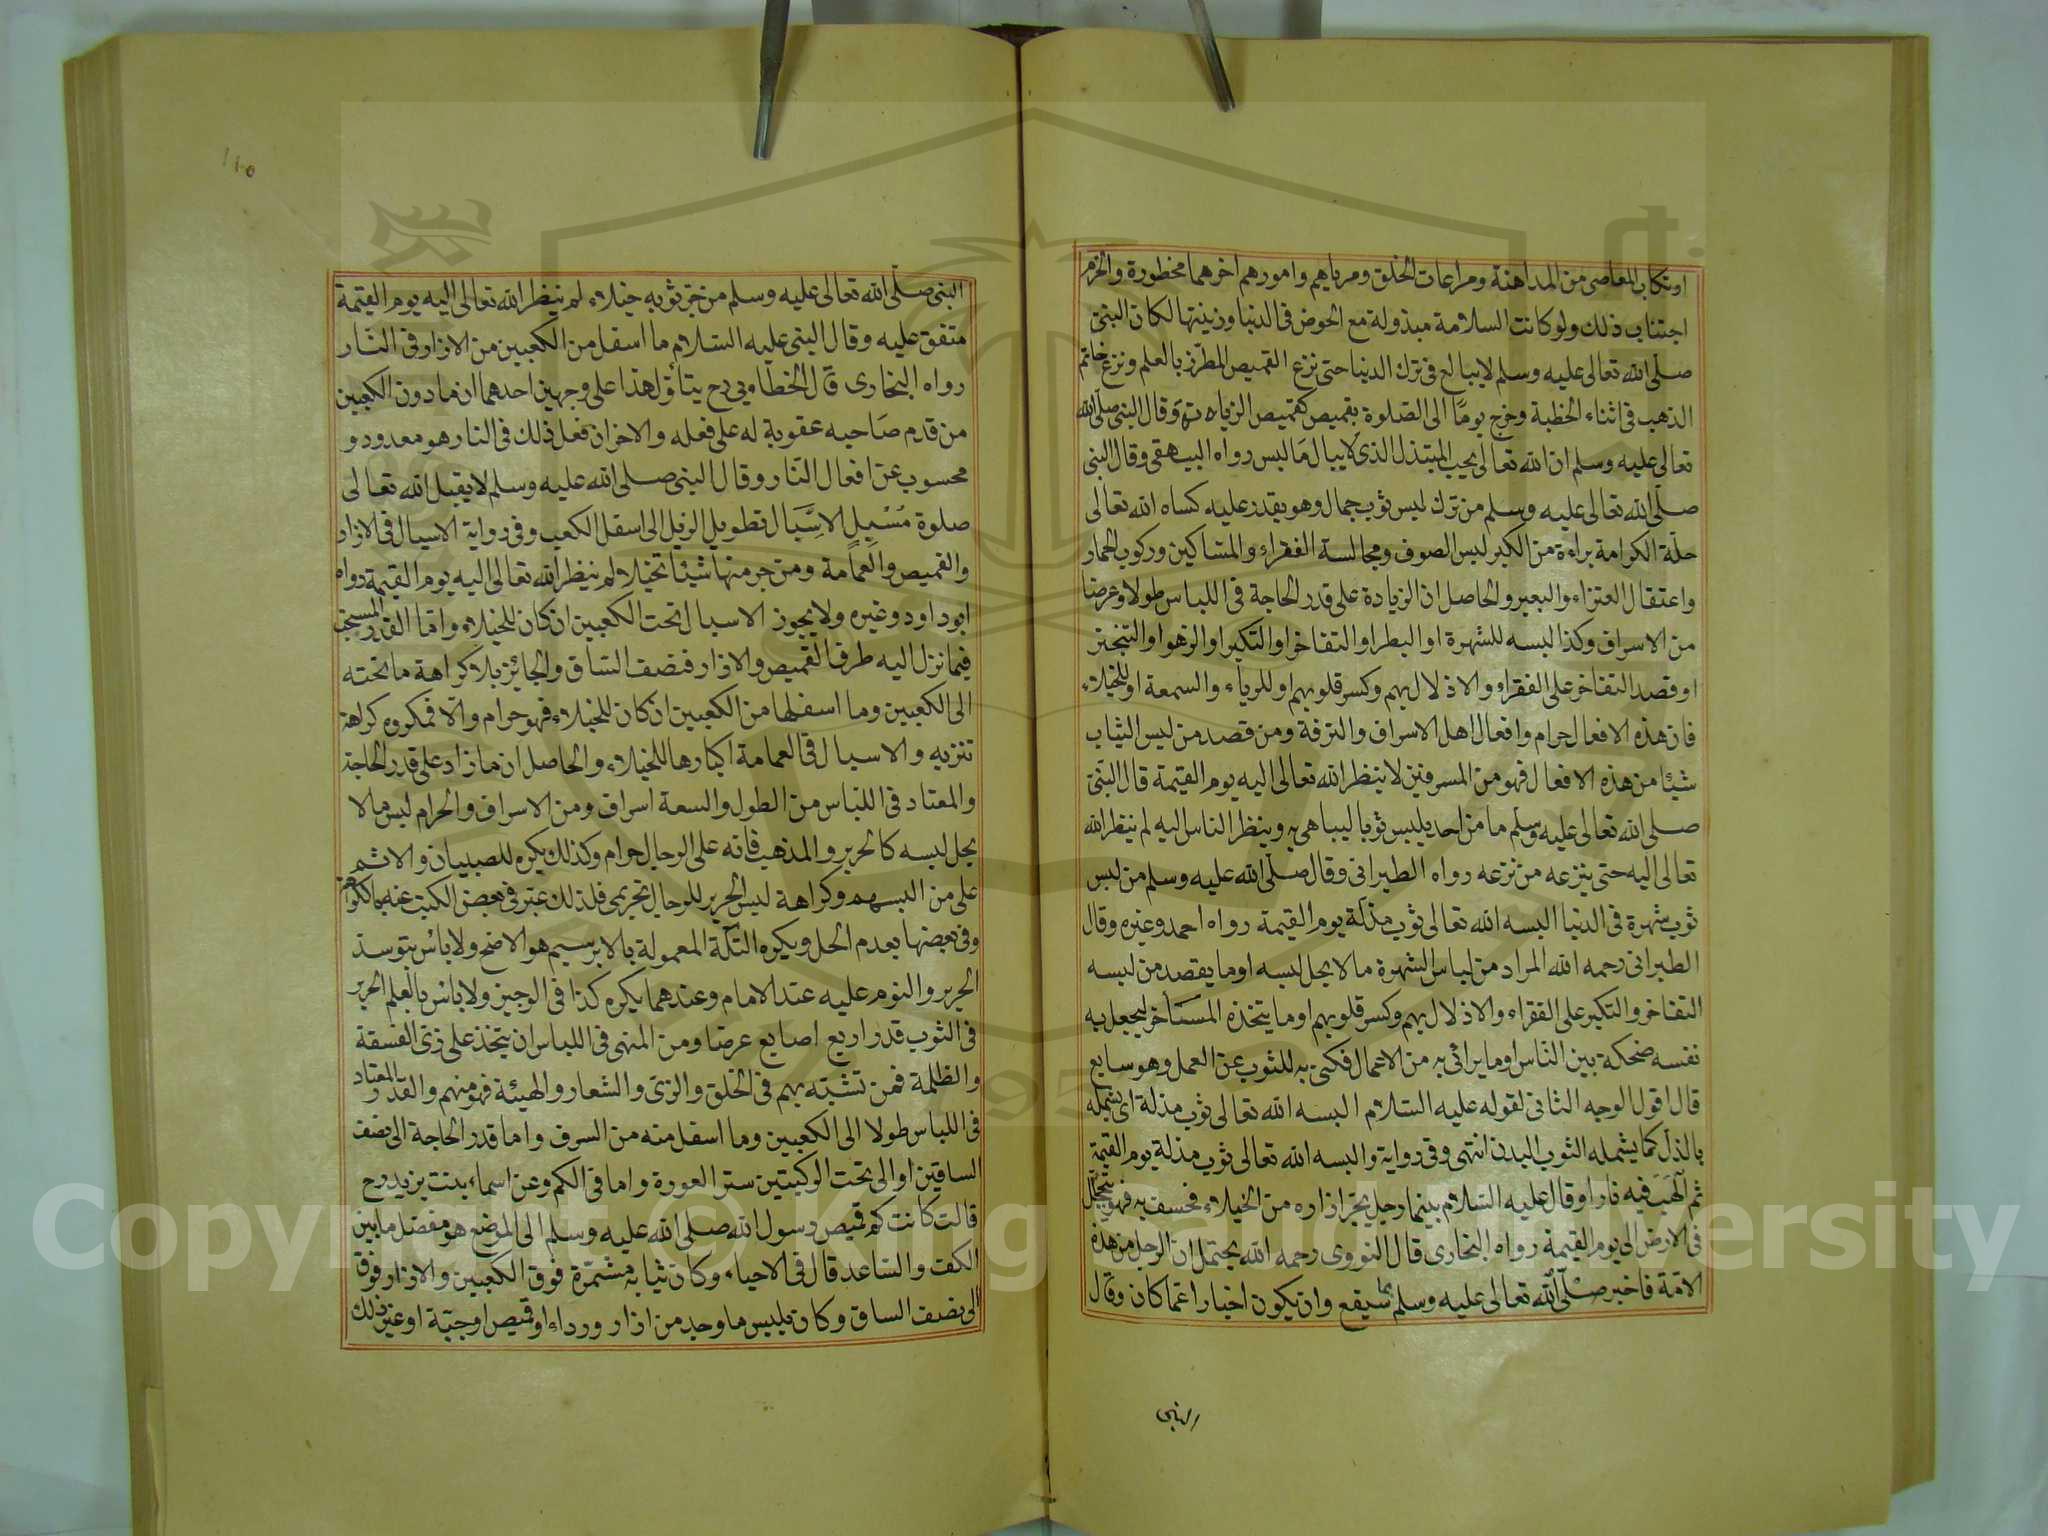 اوتكاب المعاصى من المداهنة ومراعات الخلق ومرياهم وامورهم اخوهما محظورة والحزم
اجتناب ذلك ولو كانت السلامة مبذولة مع الخوض فى الدنيا وزينتها لكان النبى
صلى الله تعالى عليه وسلم لايبالغ فى ترك الدنيا حتى نزع القميص المطرز بالعلم ونزع خاتم
الذهب فى اثناء الخطبة وخرج يوما الى الصلوة بقميص كقميص الزيات وقال النبى صلى الله
تعالى عليه وسلم ان الله تعالى يحب المبتذل الذى لايبال ما لبس رواه البيهقى وقال النبى
صلى الله تعالى عليه وسلم من ترك لبس ثوب جمال وهو يقدر عليه كساه الله تعالى
حلة الكرامة براءة من الكبر لبس الصوف ومجالسة الفقراء والمساكين وركوب الحمار
واعتقال العنز او البعير والحاصل ان الزيادة على قدر الحاجة فى اللباس طولا وعرضا
من الاسراف وكذا لبسه للشهرة او البطر او التفاخر او التكبر او الزهو او التبختر
او قصد التفاخر على الفقراء والاذلال بهم وكسر قلوبهم او للرياء والسمعة او للخيلاء
فان هذه الافعال حرام وافعال اهل الاسراف والترفة ومن قصد من لبس الثياب
شيئا من هذه الافعال فهو من المسرفين لا ينظر الله تعالى اليه يوم القيمة قال النبى
صلى الله تعالى عليه وسلم ما من احد يلبس ثوبا ليباهى به وينظر الناس اليه لم ينظر الله
تعالى اليه حتى ينزعه من نزعه رواه الطبرانى وقال صلى الله عليه وسلم من لبس
ثوب شهرة فى الدنيا البسه الله تعالى ثوب مذلة يوم القيمة رواه احمد وغيره وقال
الطبرانى رحمه الله المراد من لباس الشهرة ما لا يحل لبسه او ما يقصد من لبسه
التفاخر والتكبر على الفقراء والاذلال بهم وكسر قلوبهم او ما يتخذه المستأخر ليجعل به
نفسه ضحكة بين الناس او ما يرائى به من الاعمال فكنى به للثوب عن العمل وهو سايع
قال اقول الوجه الثانى لقوله عليه السلام البسه الله تعالى ثوب مذلة اى يشمله
بالذل كما يشمله الثوب البدن انتهى وفى رواية والبسه الله تعالى ثوب مذلة يوم القيمة
ثم الهب فيه نارا وقال عليه السلام بينما رجل يجر ازاره من الخيلاء فخسف به فهو يتجلل
فى الارض الى يوم القيمة رواه البخارى قال النووى رحمه الله يحتمل ان الرجل من هذه
الامة فاخبر صلى الله تعالى عليه وسلم بما سيقع وان يكون اخبارا عما كان وقال
النبى
١٠٥
النبى صلى الله تعالى عليه وسلم من جر ثوبه خيلاء لم ينظر الله تعالى اليه يوم القيمة
متفق عليه وقال النبى عليه السلام ما اسفل من الكعبين من الازار فى النار
رواه البخارى قال الخطابى رح يتأول هذا على وجهين احدهما ان ما دون الكعبين
من قدم صاحبه عقوبة له على فعله والاخر ان فعل ذلك فى النار هو معدود و
محسوب عن افعال النار وقال النبى صلى الله عليه وسلم لا يقبل الله تعالى
صلوة مسبل الاسبال تطويل الزيل الى اسفل الكعب وفى رواية الاسبال فى الازار
والقميص والعمامة ومن جر منها شيئا تخيلا لم ينظر الله تعالى اليه يوم القيمة رواه
ابو داود وغيره ولا يجوز الاسبال تحت الكعبين ان كان للخيلاء واما القدر المستحب
فيما نزل اليه طرف القميص والازار فنصف الساق والجائز بلا كراهة ما تحته
الى الكعبين وما اسفلها من الكعبين ان كان للخيلاء فهو حرام والا فمكروه كراهة
تنزيه والاسبال فى العمامة اكبارها للخيلاء والحاصل ان ما زاد على قدر الحاجة
والمعتاد فى اللباس من الطول والسعة اسراف ومن الاسراف والحرام لبس ما لا
يحل لبسه كالحرير والمذهب فانه على الرجال حرام وكذلك يكره للصبيان والاثم
على من البسهم وكراهة لبس الحرير للرجال تحريمى فلذلك عبر فى بعض الكتب عنه بالكراهة
وفى بعضها بعدم الحل ويكره التكة المعمولة بالابرسيم هو الاصح ولا باس بتوسد
الحرير والنوم عليه عند الامام وعندهما يكره كذا فى الوجيز ولا باس بالعلم الحرير
فى الثوب قدر اربع اصابع عرضا ومن المنهى فى اللباس ان يتخذ على زى الفسقة
والظلمة فمن تشبه بهم فى الخلق والزى والشعار والهيئة فهو منهم والقدر المعتاد
فى اللباس طولا الى الكعبين وما اسفل منه من السرف واما قدر الحاجة الى نصف
الساقين او الى تحت الركبتين ستر العورة واما فى الكم وعن اسماء بنت يزيد رح
قالت كانت كم قميص رسول الله صلى الله عليه وسلم الى الموضع هو مفصل ما بين
الكف والساعد قال فى الاحياء وكان ثيابه مشمرة فوق الكعبين والازار فوق
الى نصف الساق وكان يلبس ما وجد من ازار ورداء او قميص او جبة او غير ذلك
Copyright © King Saud University